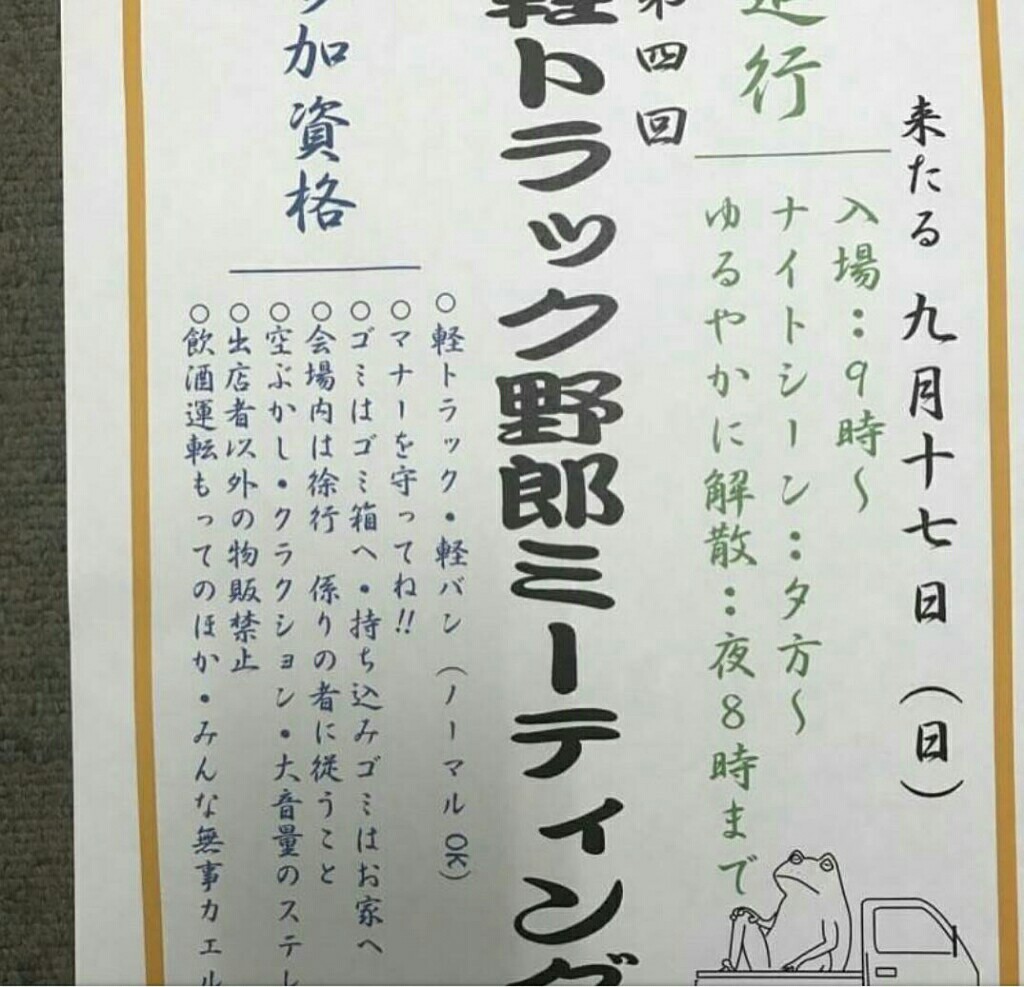 来たる 九月十七日(日)
進行
入場:9時~
ナイトシーン:夕方~
ゆるやかに解散:夜8時まで
第四回
軽トラック野郎ミーティング
参加資格
○軽トラック・軽バン(ノーマルOK)
○マナーを守ってね!!
○ゴミはゴミ箱へ・持ち込みゴミはお家へ
○会場内は徐行 係りの者に従うこと
○空ぶかし・クラクション・大音量のステレ
○出店者以外の物販禁止
○飲酒運転もってのほか・みんな無事カエル